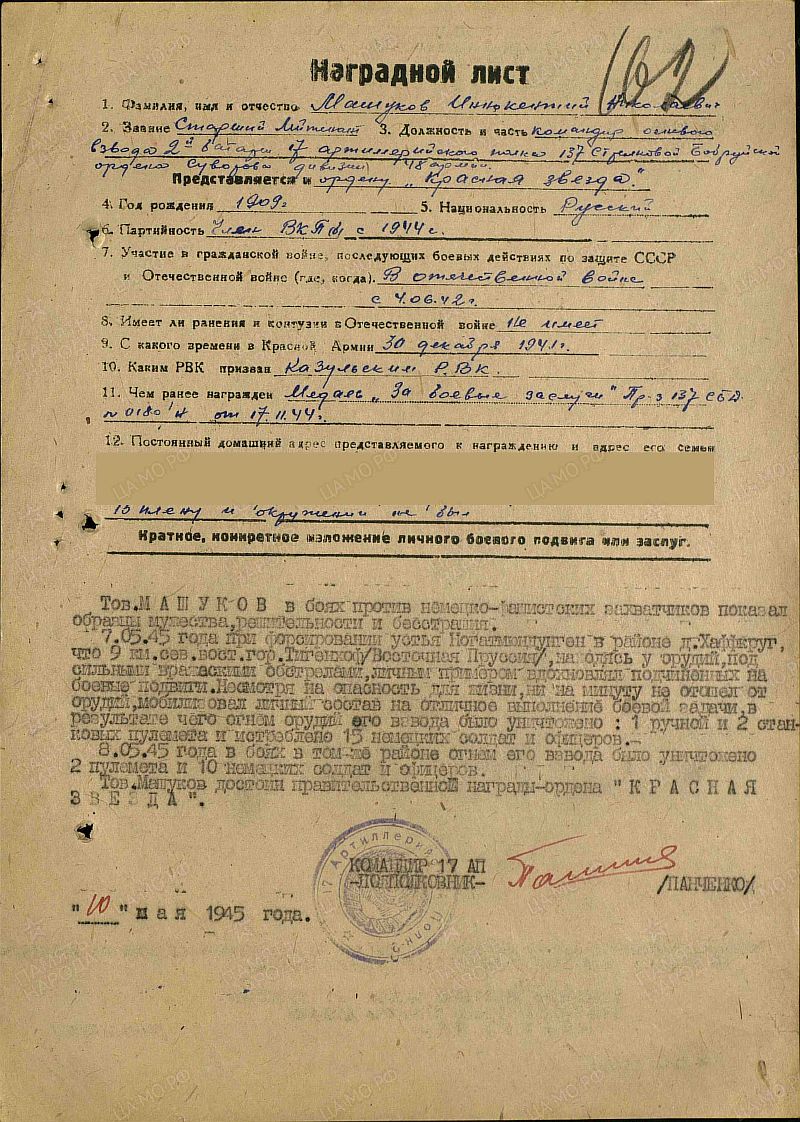 162
Наградной лист
1. Фамилия, имя и отчество Машуков Инокентий Николаевич
2. Звание Старший Лейтенант 3. Должность и часть командир огневого
взвода 2й батареи 17 артиллерийского полка 137 Стрелковой Бобруйской
ордена Суворова дивизии 48 армии
Представляется к ордену „Красная звезда."
4. Год рождения 1909г 5. Национальность Русский
6. Партийность Член ВКПб с 1944г.
7. Участие в гражданской войне, последующих боевых действиях по защите СССР
и Отечественной войне (где, когда). В отечественной войне
с 4.06.42г.
8. Имеет ли ранения и контузии в Отечественной войне Не имеет
9. С какого времени в Красной Армии 30 декабря 1941г.
10. Каким РВК призван Казульским РВК.
11. Чем ранее награжден Медаль „За боевые заслуги" Пр-з 137 СБД
№ 0180/н от 17.11.44г.
12. Постоянный домашний адрес представляемого к награждению и адрес его семьи
В плену и окружении не был
Краткое, конкретное изложение личного боевого подвига или заслуг.
Тов.МАШУКОВ в боях против немецко-фашистских захватчиков показал
образцы мужества,решительности и бесстрашия.
7.05.45 года при форсировании устья Когатмюндунген в районе д.Хаффкруг,
что 9 км.сев.вост.гор.Тигенхоф/Восточная Пруссия/,находясь у орудий,под
сильными вражескими обстрелами,личным примером вдохновлял подчиненных на
боевые подвиги.Несмотря на опасность для жизни,ни на минуту не отошел от
орудий,мобилизовал личный состав на отличное выполнение боевой задачи,в
результате чего огнем орудий его взвода было уничтожено : 1 ручной и 2 стан-
ковых пулемета и истреблено 15 немецких солдат и офицеров.-
8.05.45 года в боях в том-же районе огнем его взвода было уничтожено
2 пулемета и 10 немецких солдат и офицеров.
Тов.Машуков достоин правительственной награды-ордена "КРАСНАЯ
ЗВЕЗДА".
17 Артиллерийс Полк
КОМАНДИР 17 АП
-ПОДПОЛКОВНИК- /ПАНЧЕНКО/
"10" мая 1945 года.
ЦАМО РФ